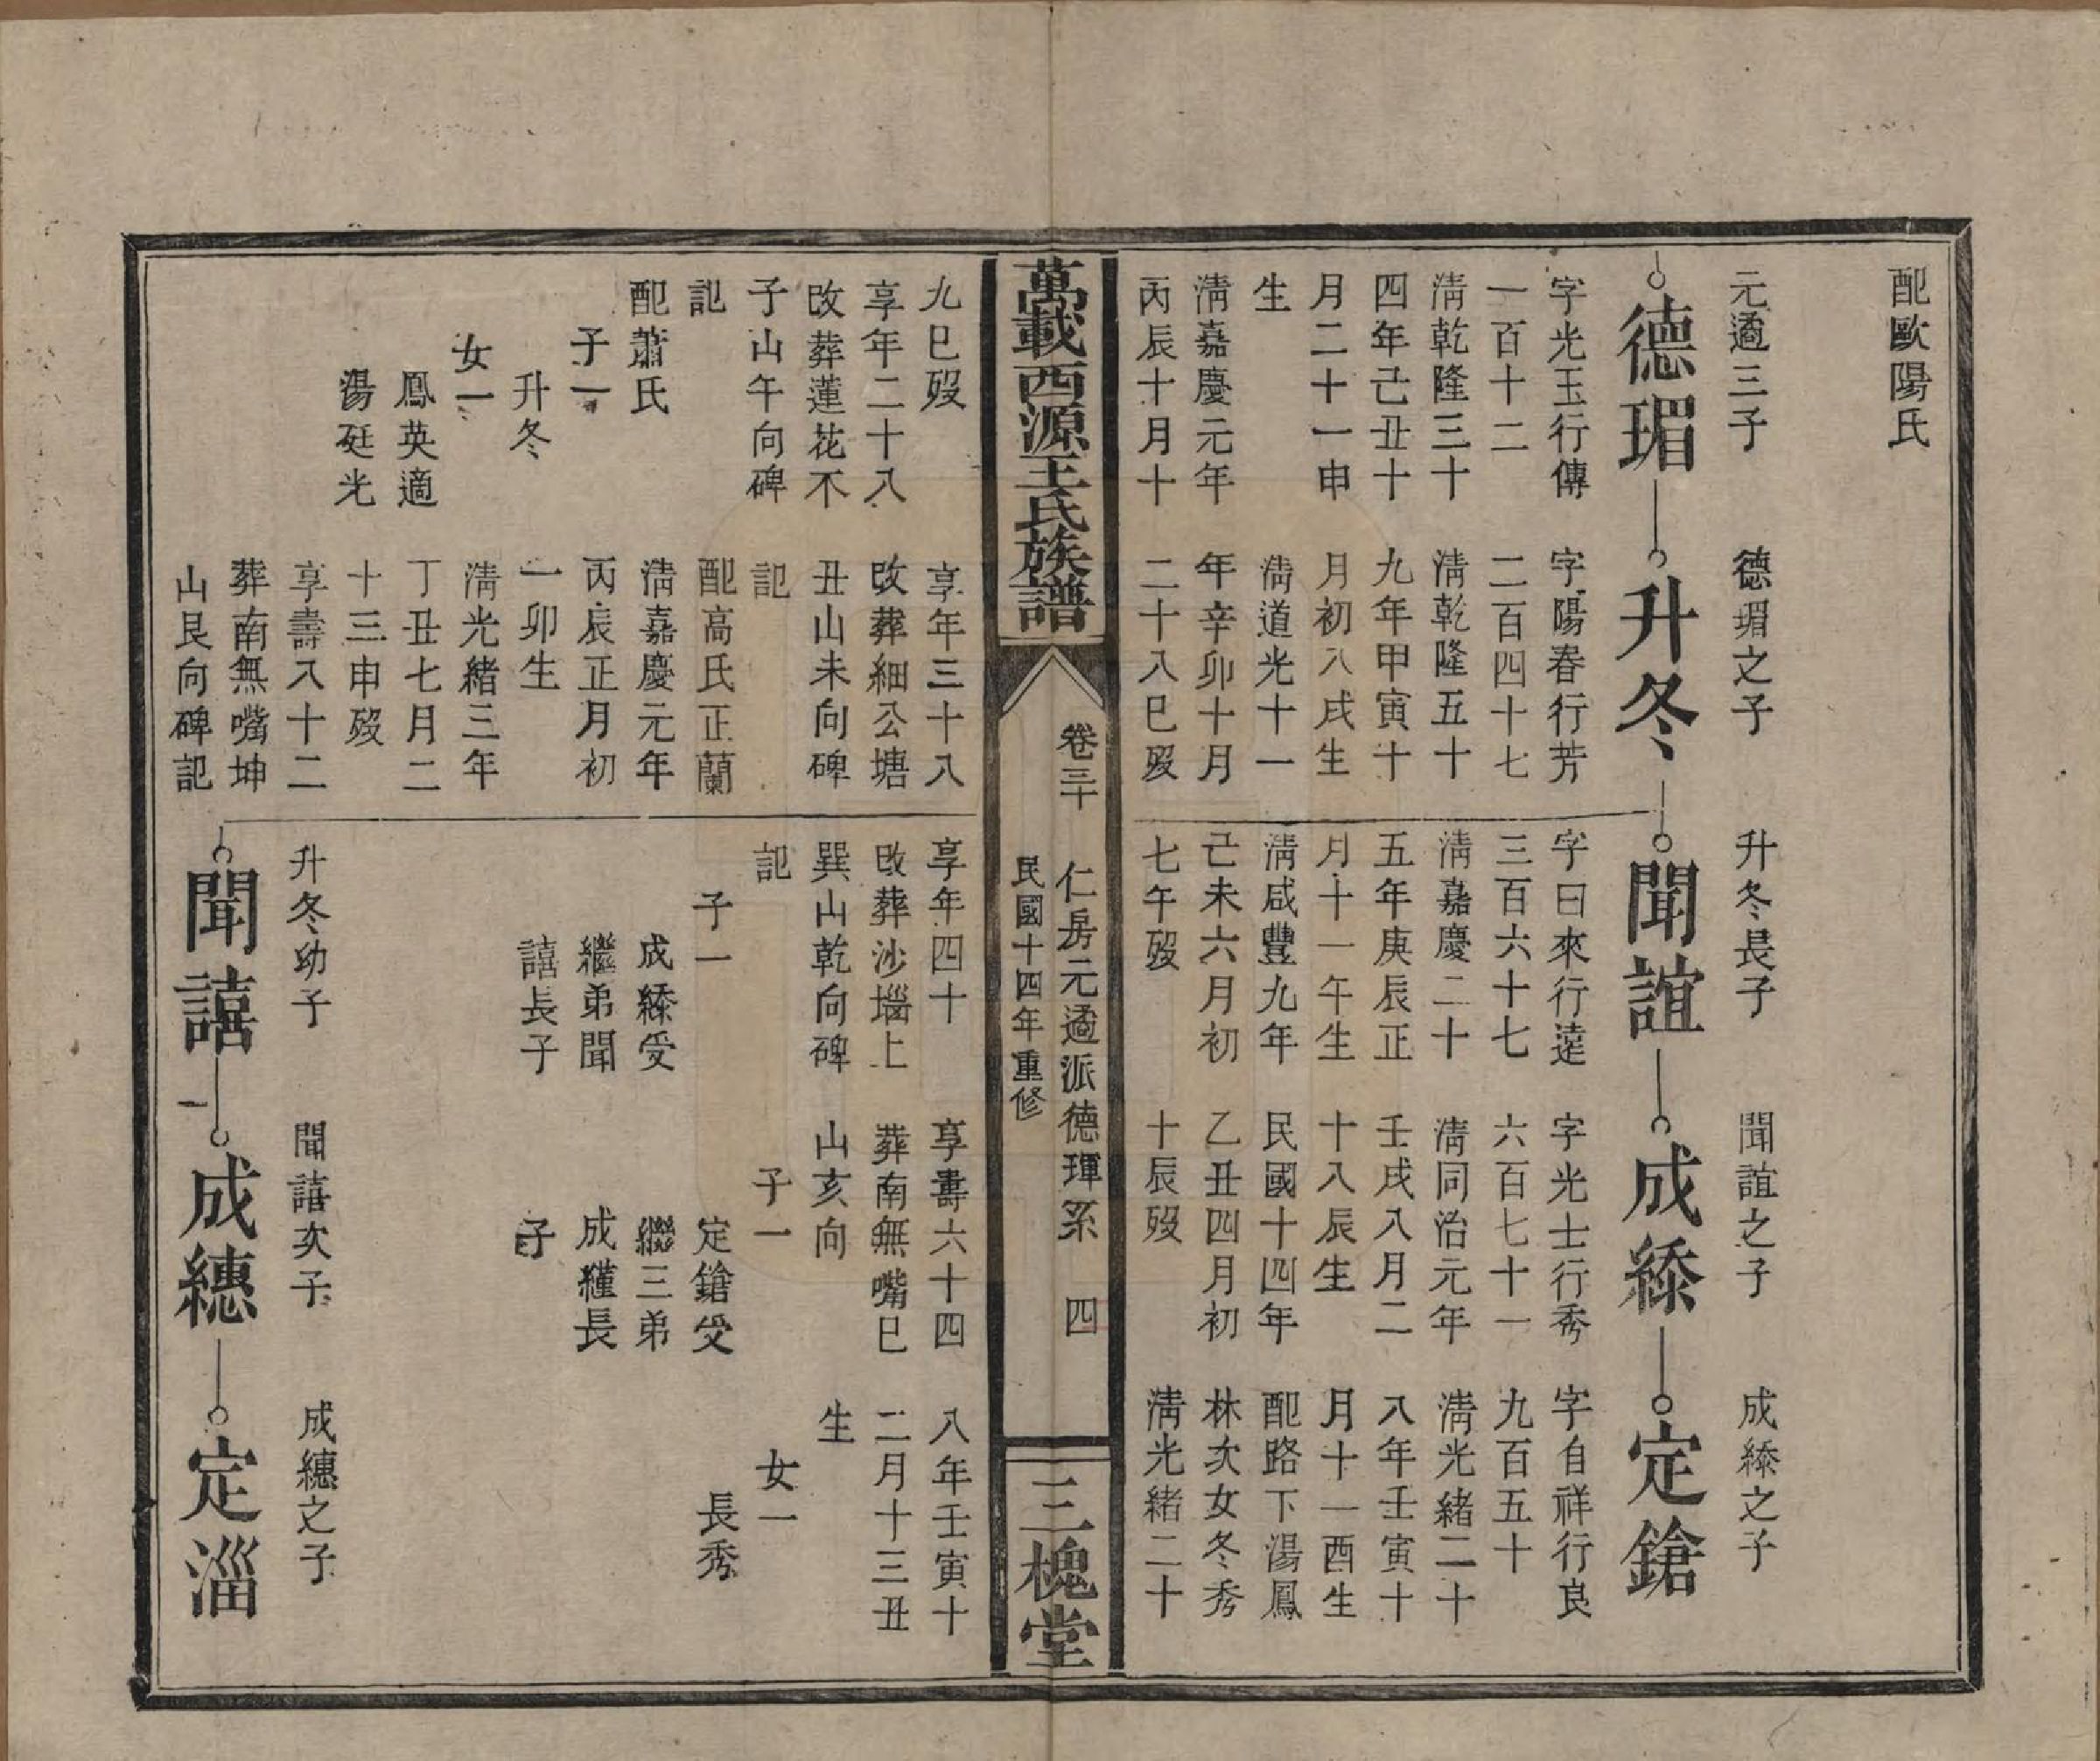 配歐陽氏
元遹三子
德瑂
字光玉行傳
一百十二
淸乾隆三十
四年己丑十
月二十一申
生
淸嘉慶元年
丙辰十月十
德瑂之子
升冬
字陽春行芳
二百四十七
淸乾隆五十
九年甲寅十
月初八戌生
淸道光十一
年辛卯十月
二十八巳歿
升冬長子
聞誼
字曰來行遠
三百六十七
淸嘉慶二十
五年庚辰正
月十一午生
淸咸豐九年
己未六月初
七午歿
聞誼之子
成縩
字光士行秀
六百七十一
淸同治元年
壬戌八月二
十八辰生
民國十四年
乙丑四月初
十辰歿
成縩之子
定鎗
字自祥行良
九百五十
淸光緒二十
八年壬寅十
月十一酉生
配路下湯鳳
林次女冬秀
淸光緒二十
萬載西源王氏族譜
卷三十
仁房元遹派德琿系
四
民國十四年重修
三槐堂
九巳歿
享年二十八
改葬蓮花不
子山午向碑
記
配蕭氏
子一
升冬
女一
鳳英適
湯廷光
享年三十八
改葬細公塘
丑山未向碑
記
配高氏正蘭
淸嘉慶元年
丙辰正月初
一卯生
淸光緒三年
丁丑七月二
十三申歿
享壽八十二
葬南無嘴坤
山艮向碑記
享年四十
改葬沙堖上
巽山乾向碑
記
子一
成縩受
繼弟聞
譆長子
享壽六十四
葬南無嘴巳
山亥向
子一
定鎗受
繼三弟
成繀長
子
八年壬寅十
二月十三丑
生
女一
長秀
升冬幼子
聞譆
聞譆次子
成繐
成繐之子
定淄